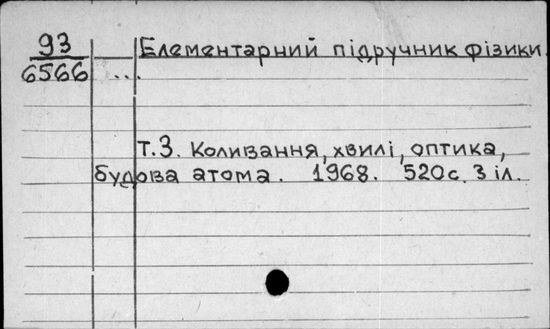 93 — Елементарний підручник фізики.
6566 ...
т.3. Коливання, хвилі, оптика,
будова атома. 1968. 520с. з іл.